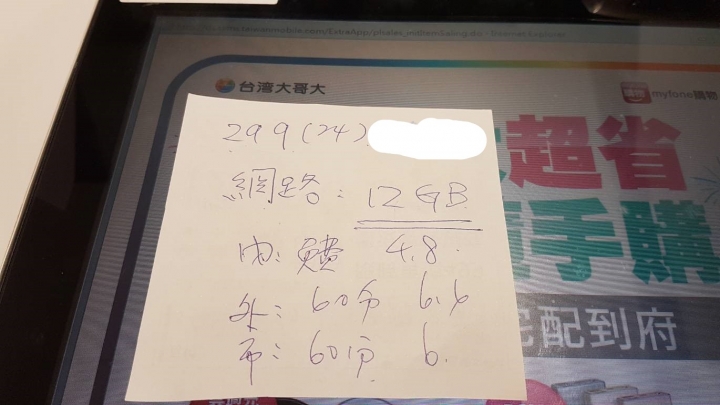 taiwanmobile.com/ExtraApp/ - Internet Explorer
台灣大哥大
myfone購物
超省
手購
宅配到府
299(24)
網路: 12GB
內: 免費 4.8
外: 60分 6.6
市: 60分 6.